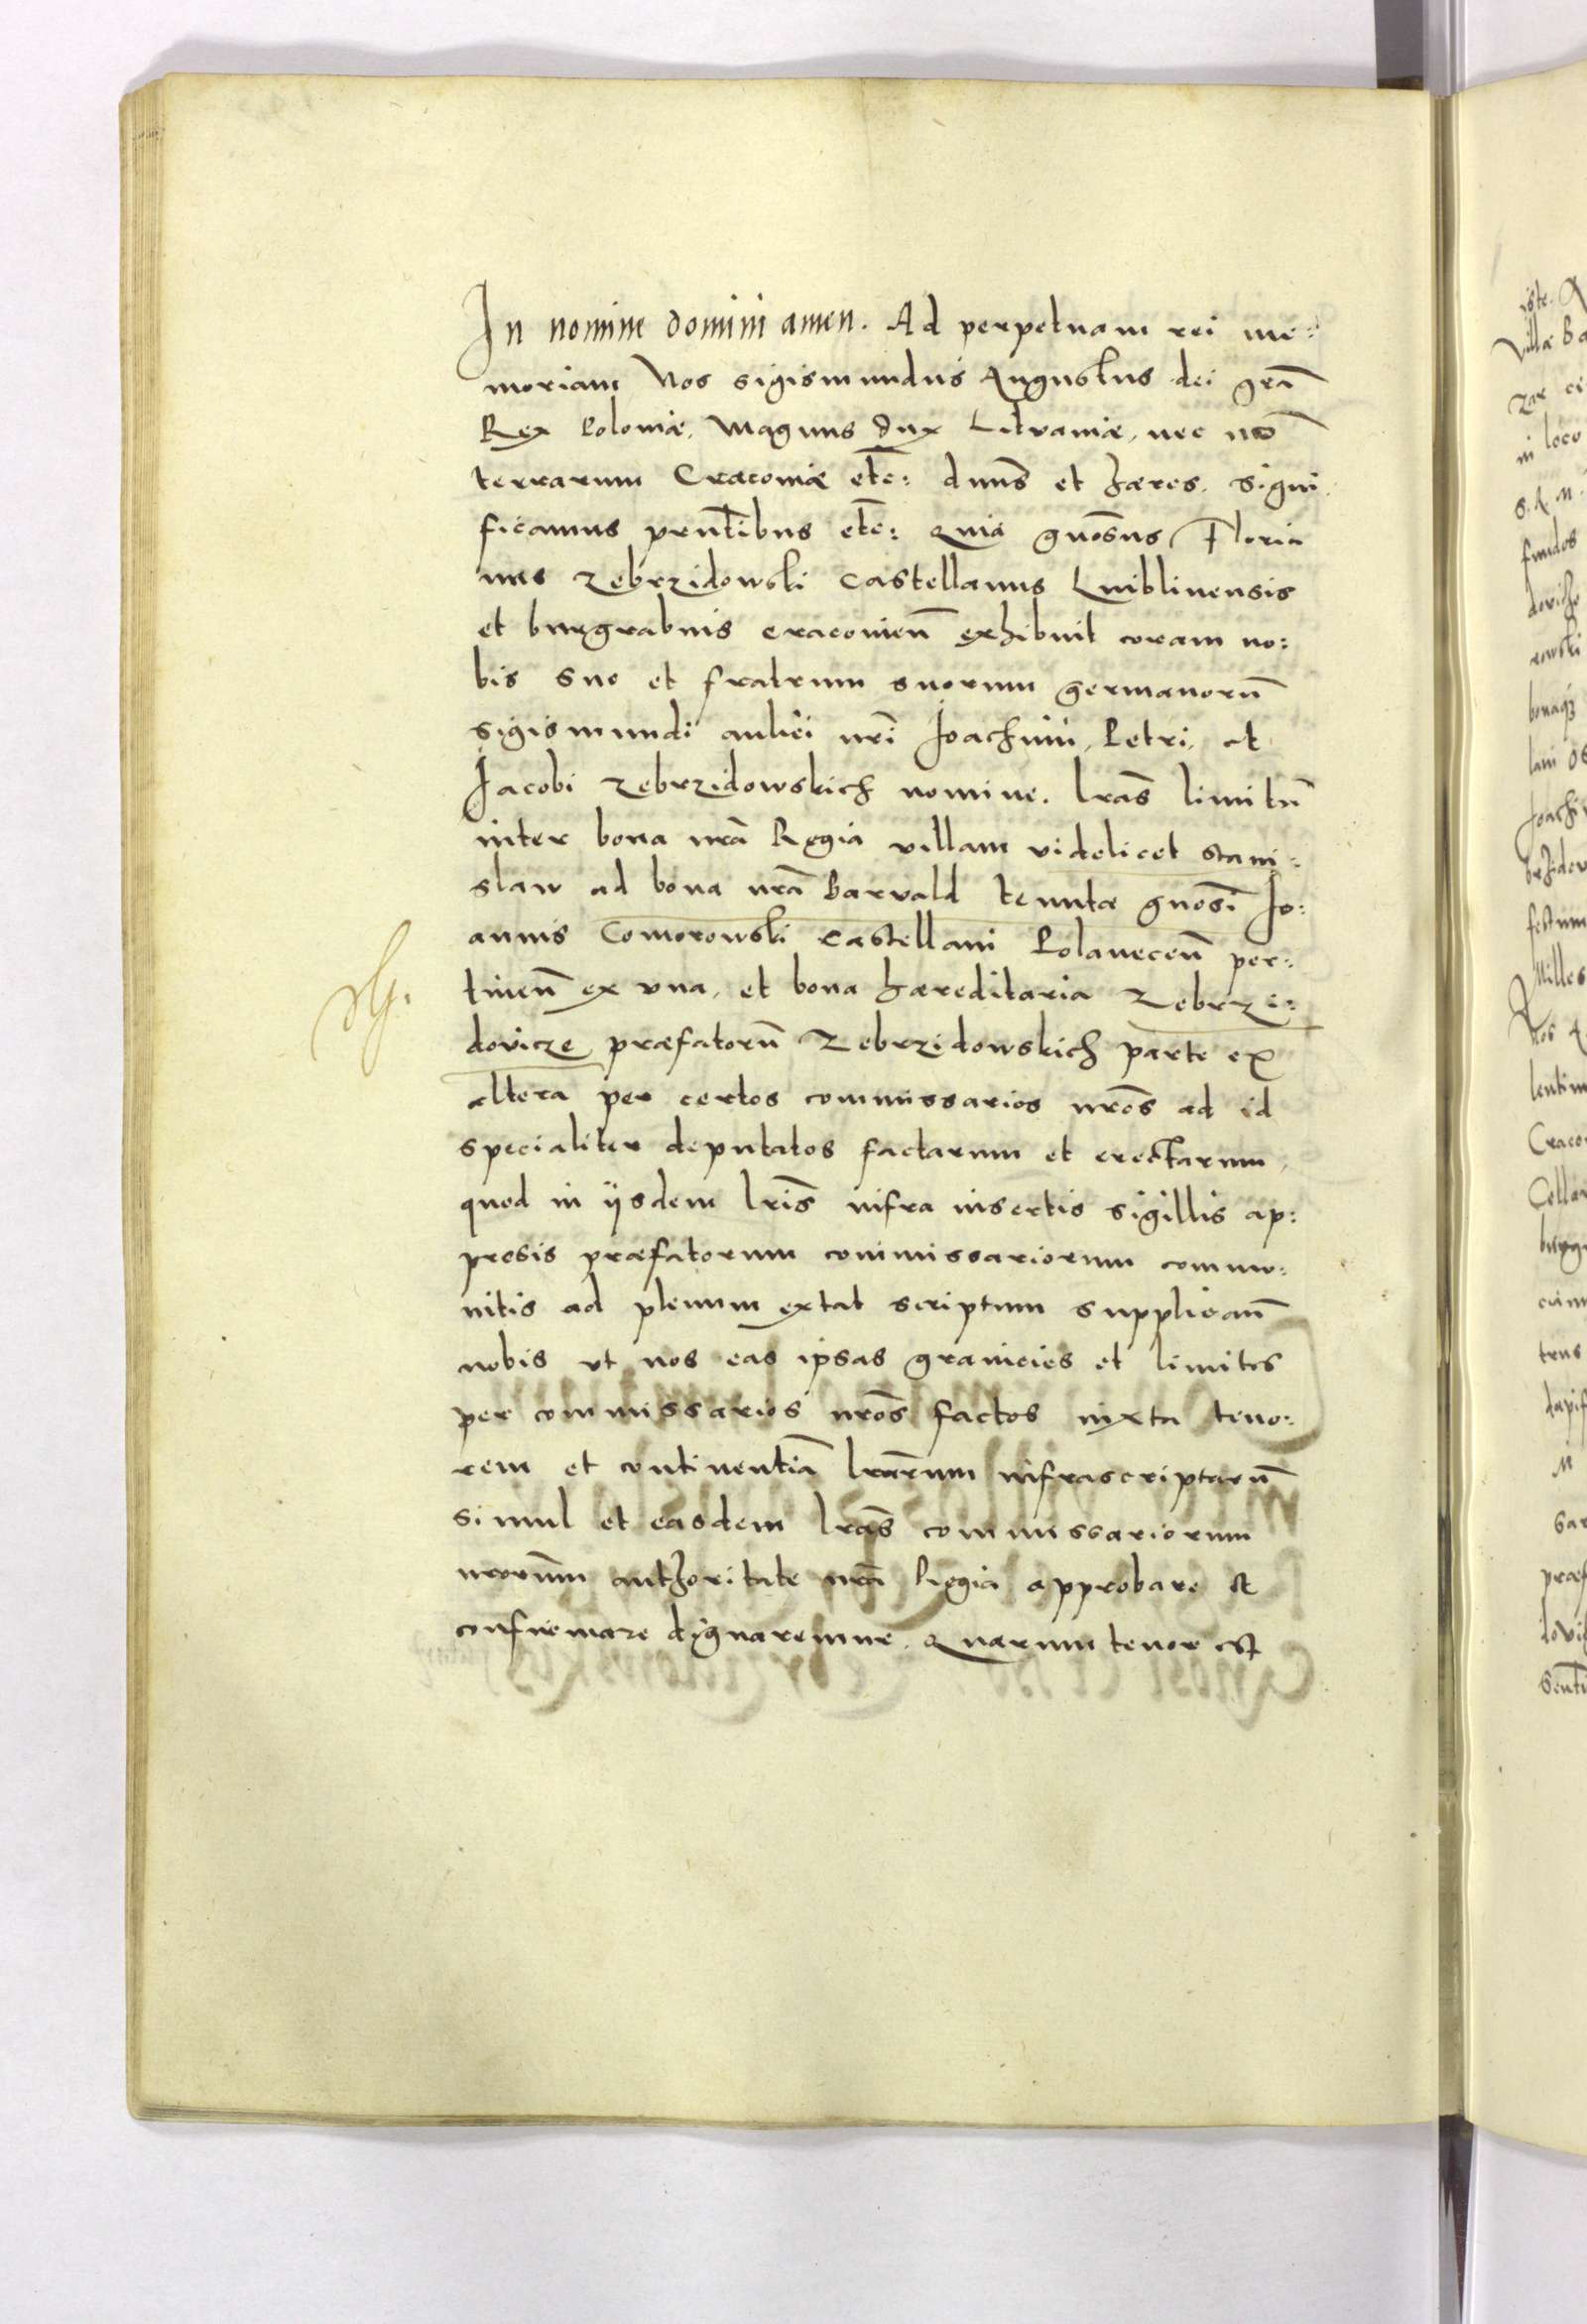 In nomine domini amen. Ad perpetuam rei me:
moriam Nos sigismundus Augustus dei gra͞
Rex Poloniæ, Magnus Dux Lituaniæ, nec no͞
terrarum Cracoviæ etc: dnus͞ et hæres. Signi
ficamus prnt͞ibus etc: Quia gnos͞us Floria
nus Zebrzidowski Castellanus Lublinensis
et burgrabius cracovien͞ exhibuit coram no:
bis suo et fratrum suorum germanoru͞
sigismundi aulici nri͞ Joachimi, Petri, et
Jacobi Zebrzidowskich nomine. lras͞ limitu͞
inter bona nra͞ Regia villam videlicet Stani:
slaw ad bona nra͞ Barvald tenutæ gnosi͞ Jo:
annis Comorowski Castellani Polanecen͞ per:
tinen͞ ex una, et bona hæreditaria Zebrzi:
dovicze præfatoru͞ Zebrzidowskich parte ex
altera per certos commissarios nros͞ ad id
specialiter deputatos factarum et erectarum,
quod in ijsdem lris͞ infra insertis sigillis ap:
presis præfatorum commissariorum commu:
nitis ad plenum extat scriptum supplican͞
nobis ut nos eas ipsas granicies et limites
per commissarios nros͞ factos iuxta teno:
rem et continentia͞ lrar͞um infrascriptaru͞
simul et easdem lras͞ commissariorum
nroru͞m authoritate nra͞ Regia approbare et
confirmare dignaremur. Quarum tenor est